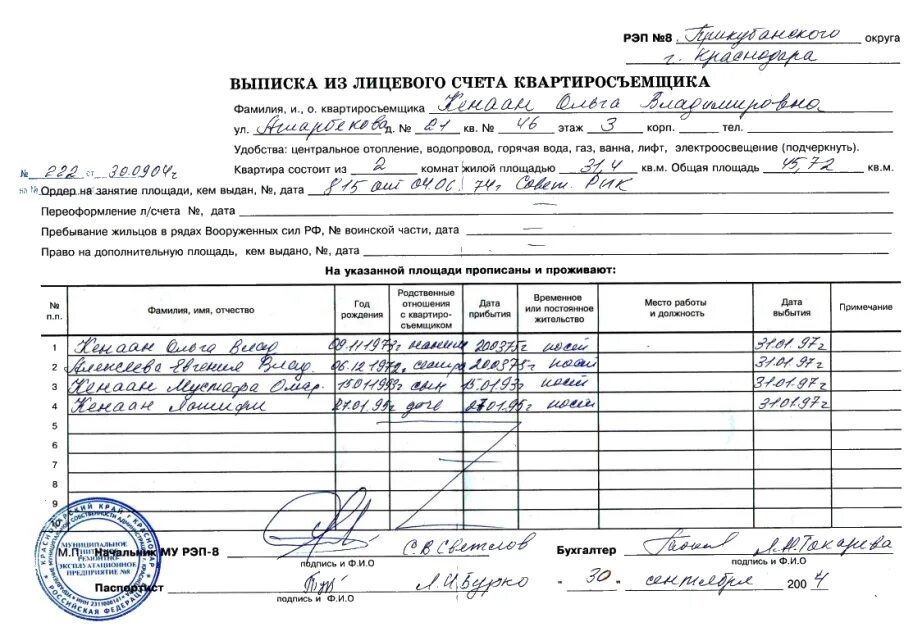 РЭП №8 Прикубанского округа
г. Краснодара
ВЫПИСКА ИЗ ЛИЦЕВОГО СЧЕТА КВАРТИРОСЪЕМЩИКА
Фамилия, и., о. квартиросъемщика Кенаан Ольга Владимировна
ул. Ашарбекова д. № 21 кв. № 46 этаж 3 корп. тел.
Удобства: центральное отопление, водопровод, горячая вода, газ, ванна, лифт, электроосвещение (подчеркнуть).
№ 222 от 30.09.04г. Квартира состоит из 2 комнат жилой площадью 31,4 кв.м. Общая площадь 45,72 кв.м.
на № Ордер на занятие площади, кем выдан, №, дата 815 от 04.06.74г Совет. РИК
Переоформление л/счета №, дата —
Пребывание жильцов в рядах Вооруженных сил РФ, № воинской части, дата —
Право на дополнительную площадь, кем выдано, №, дата —
На указанной площади прописаны и проживают:
№ п.п. Фамилия, имя, отчество Год рождения Родственные отношения с квартиро-съемщиком Дата прибытия Временное или постоянное жительство Место работы и должность Дата выбытия Примечание
1 Кенаан Ольга Влад 200375 31.01.97г
2 Алексеева Евгения Влад. 06.12.1972г сестра 200375 31.01.97г
3 Кенаан Мустафа Омар. сын 15.01.93г 31.01.97г
4 Кенаан 21.01.95г дочь 31.01.97г
5
6
7
8
9
М.П. Начальник МУ РЭП-8 С В Светлов Бухгалтер Л.М.Токарева
подпись и Ф.И.О подпись и Ф.И.О
Паспортист Л.И.Бурко - 30 - сентября 2004
подпись и Ф.И.О
КРАСНОДАРСКИЙ КРАЙ г. КРАСНОДАР
МУНИЦИПАЛЬНОЕ
УНИТАРНОЕ
РЕМОНТНО-
ЭКСПЛУАТАЦИОННОЕ
ПРЕДПРИЯТИЕ №8
РОССИЙСКАЯ ФЕДЕРАЦИЯ